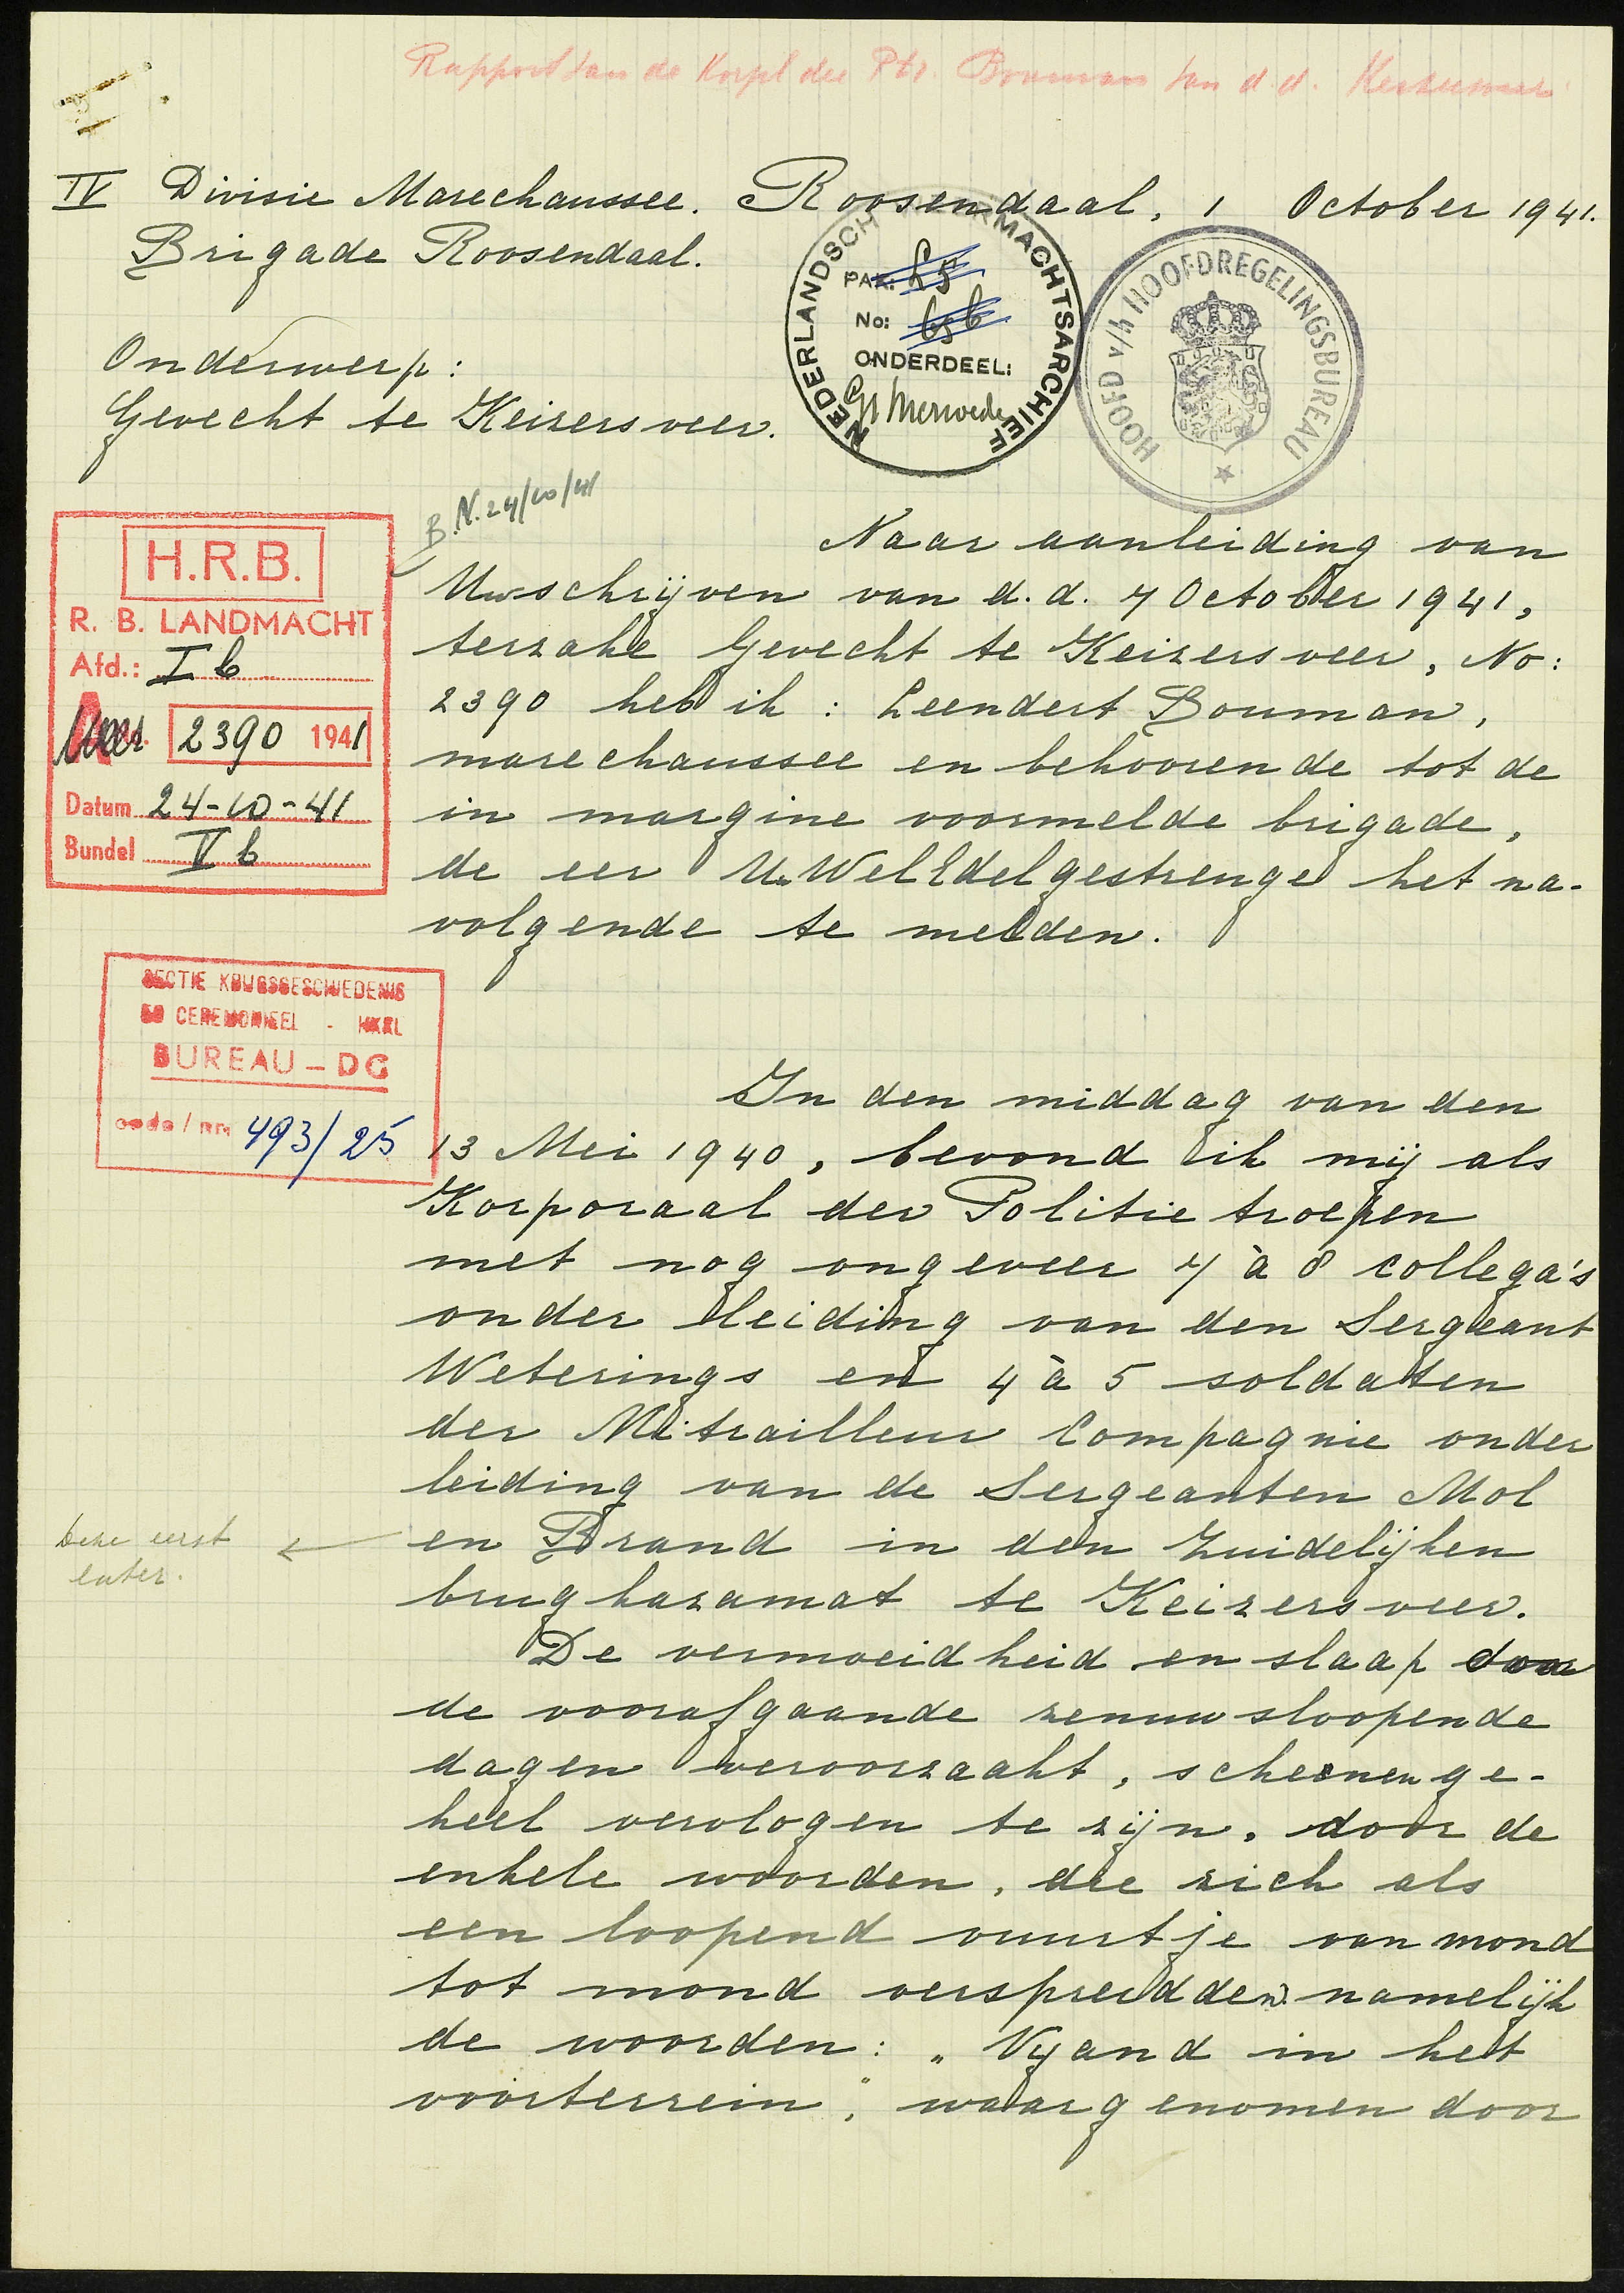 Rapport van de Korpl der Ptr. Bouman van d.d. Keizersveer
IV Divisie Marechaussee. Roosendaal, 1 October 1941.
Brigade Roosendaal.
NEDERLANDSCH MACHTSARCHIEF
PAK: 85
No: 656
ONDERDEEL:
Gr Merwede
HOOFD v/h HOOFDREGELINGSBUREAU
Onderwerp:
Gevecht te Keizersveer.
B.N. 24/10/41
H.R.B.
R. B. LANDMACHT
Afd.: I b
No. 2390 1941
Datum 24-10-41
Bundel V b
Naar aanleiding van
Uwschrijven van d.d. 7 October 1941,
terzake Gevecht te Keizersveer, No:
2390 heb ik : Leendert Bouman,
marechaussee en behoorende tot de
in margine voormelde brigade,
de eer U.WelEdelgestrenge het na-
volgende te melden.
SECTIE KRIJGSGESCHIEDENIS
EN CEREMONIEEL - HKKL
BUREAU - DG
code / nr. 493/25
In den middag van den
13 Mei 1940, bevond ik mij als
Korporaal der Politie troepen
met nog ongeveer 7 à 8 collega's
onder leiding van den Sergeant
Weterings en 4 à 5 soldaten
der Mitrailleur Compagnie onder
leiding van de Sergeanten Mol
deze eerst
later.
en Brand in den Zuidelijken
brugkazamat te Keizersveer.
De vermoeidheid en slaap door
de voorafgaande zenuwsloopende
dagen veroorzaakt, schenen ge-
heel vervlogen te zijn, door de
enkele woorden, die zich als
een loopend vuurtje van mond
tot mond verspreidden namelijk
de woorden: „Vyand in het
voorterrein", waargenomen door